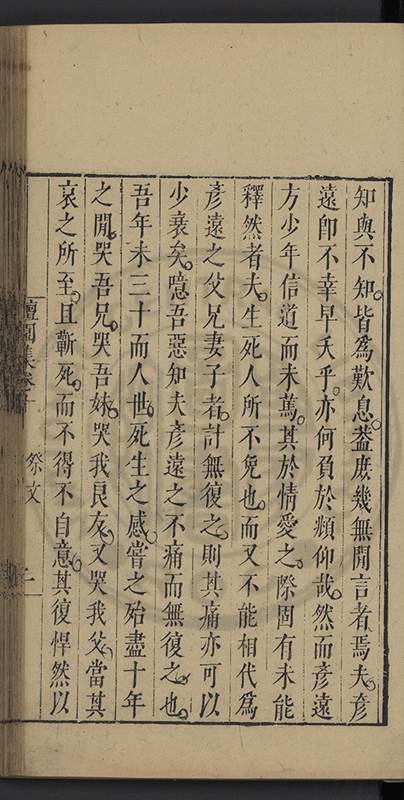 知與不知皆為歎息葢庶幾無閒言者焉夫彥
遠卽不幸早夭乎亦何負於頫仰哉然而彥遠
方少年信道而未篤其於情愛之際固有未能
釋然者夫生死人所不免也而又不能相代為
彥遠之父兄妻子者計無復之則其痛亦可以
少衰矣噫吾惡知夫彥遠之不痛而無復之也
吾年未三十而人世死生之感嘗之殆盡十年
之閒哭吾兄哭吾妹哭我良友又哭我父當其
哀之所至且蘄死而不得不自意其復悍然以
檀園集卷十 祭文 二